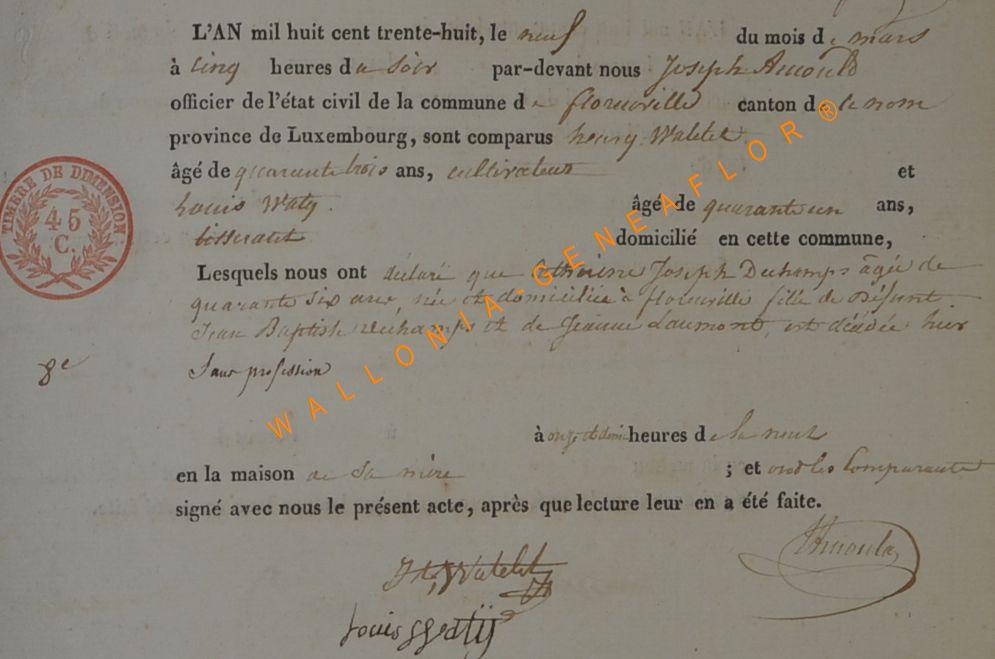 L'AN mil huit cent trente-huit, le neuf du mois de mars
à Cinq heures du Soir par-devant nous Joseph Arnould
officier de l'état civil de la commune de florenville canton de ce nom
province de Luxembourg, sont comparus henry Watelet
âgé de quarante trois ans, cultivateur et
Louis Waty. âgé de quarante un ans,
tisserand domicilié en cette commune,
Lesquels nous ont déclaré que Catherine Joseph Duchamps âgée de
quarante six ans, née et domiciliée à florenville fille de défunt
Jean Baptiste Duchamps et de Jeanne Laumont, est décédée hier
8e Sans profession
à onze et demi heures de la nuit
en la maison de Sa mère ; et ont les Comparants
signé avec nous le présent acte, après que lecture leur en a été faite.
Watelet
Louis
TIMBRE DE DIMENSION
45
C.
WALLONIA-GENEAFLOR®